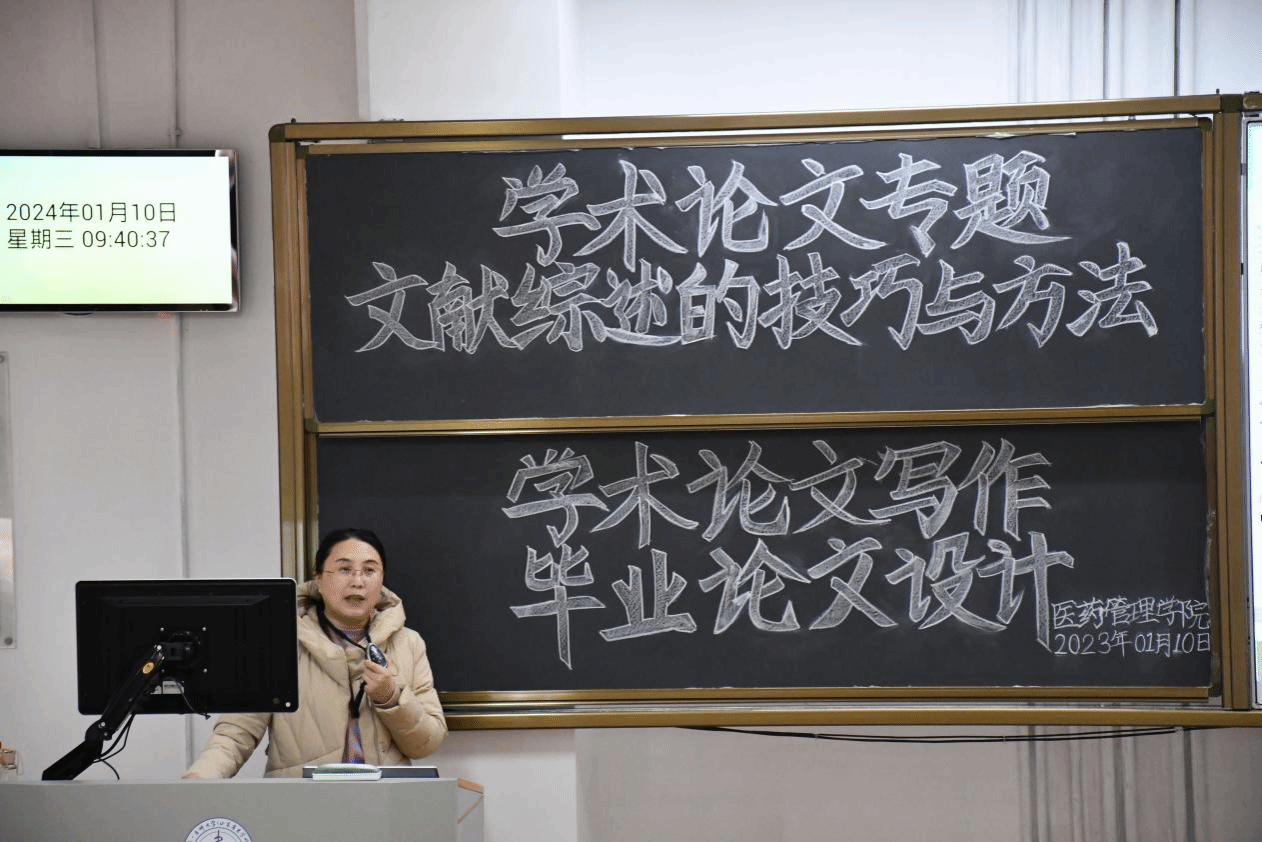 2024年01月10日
星期三 09:40:37
学术论文专题
文献综述的技巧与方法
学术论文写作
毕业论文设计
医药管理学院
2023年01月10日